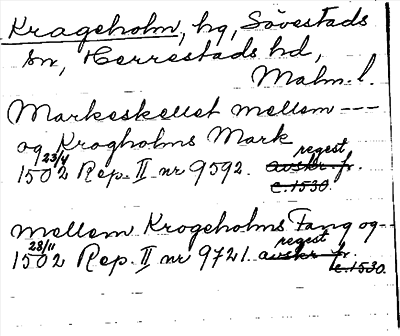 Krageholm, hg, Sövestads
sn, Herrestads hd,
Malm. l.
Markeskellet mellem ---
og Krogholms Mark
23/4 regest
1502 Rep. II nr 9592. avskr. fr.
c. 1530.
mellem Krogeholms Fang og--
28/11 regest
1502 Rep. II nr 9721. avskr. fr.
c. 1530.